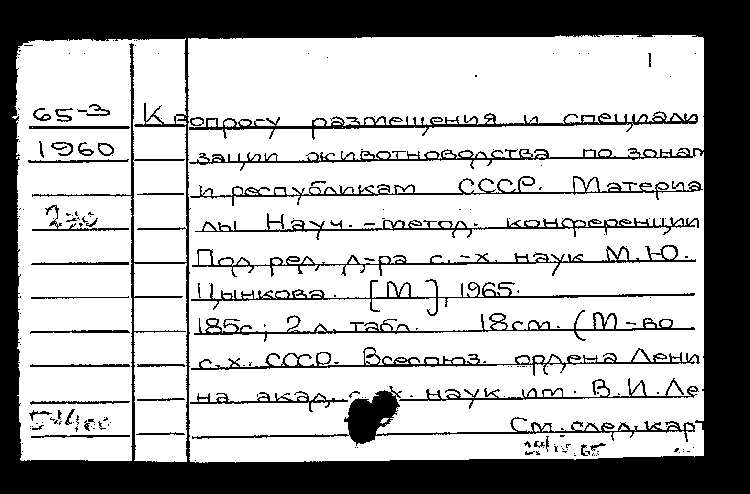 1
65-3 К вопросу размещения и специали
1960 зации животноводства по зонам
и республикам СССР. Материа
лы Науч.-метод. конференции
Под ред. д-ра с.-х. наук М.Ю.
Цынкова. [М.], 1965.
185с; 2 л. табл. 18см. (М-во
с.х. СССР. Всесоюз. ордена Лени
на акад. с.х. наук им. В.И.Ле-
См. след. карт